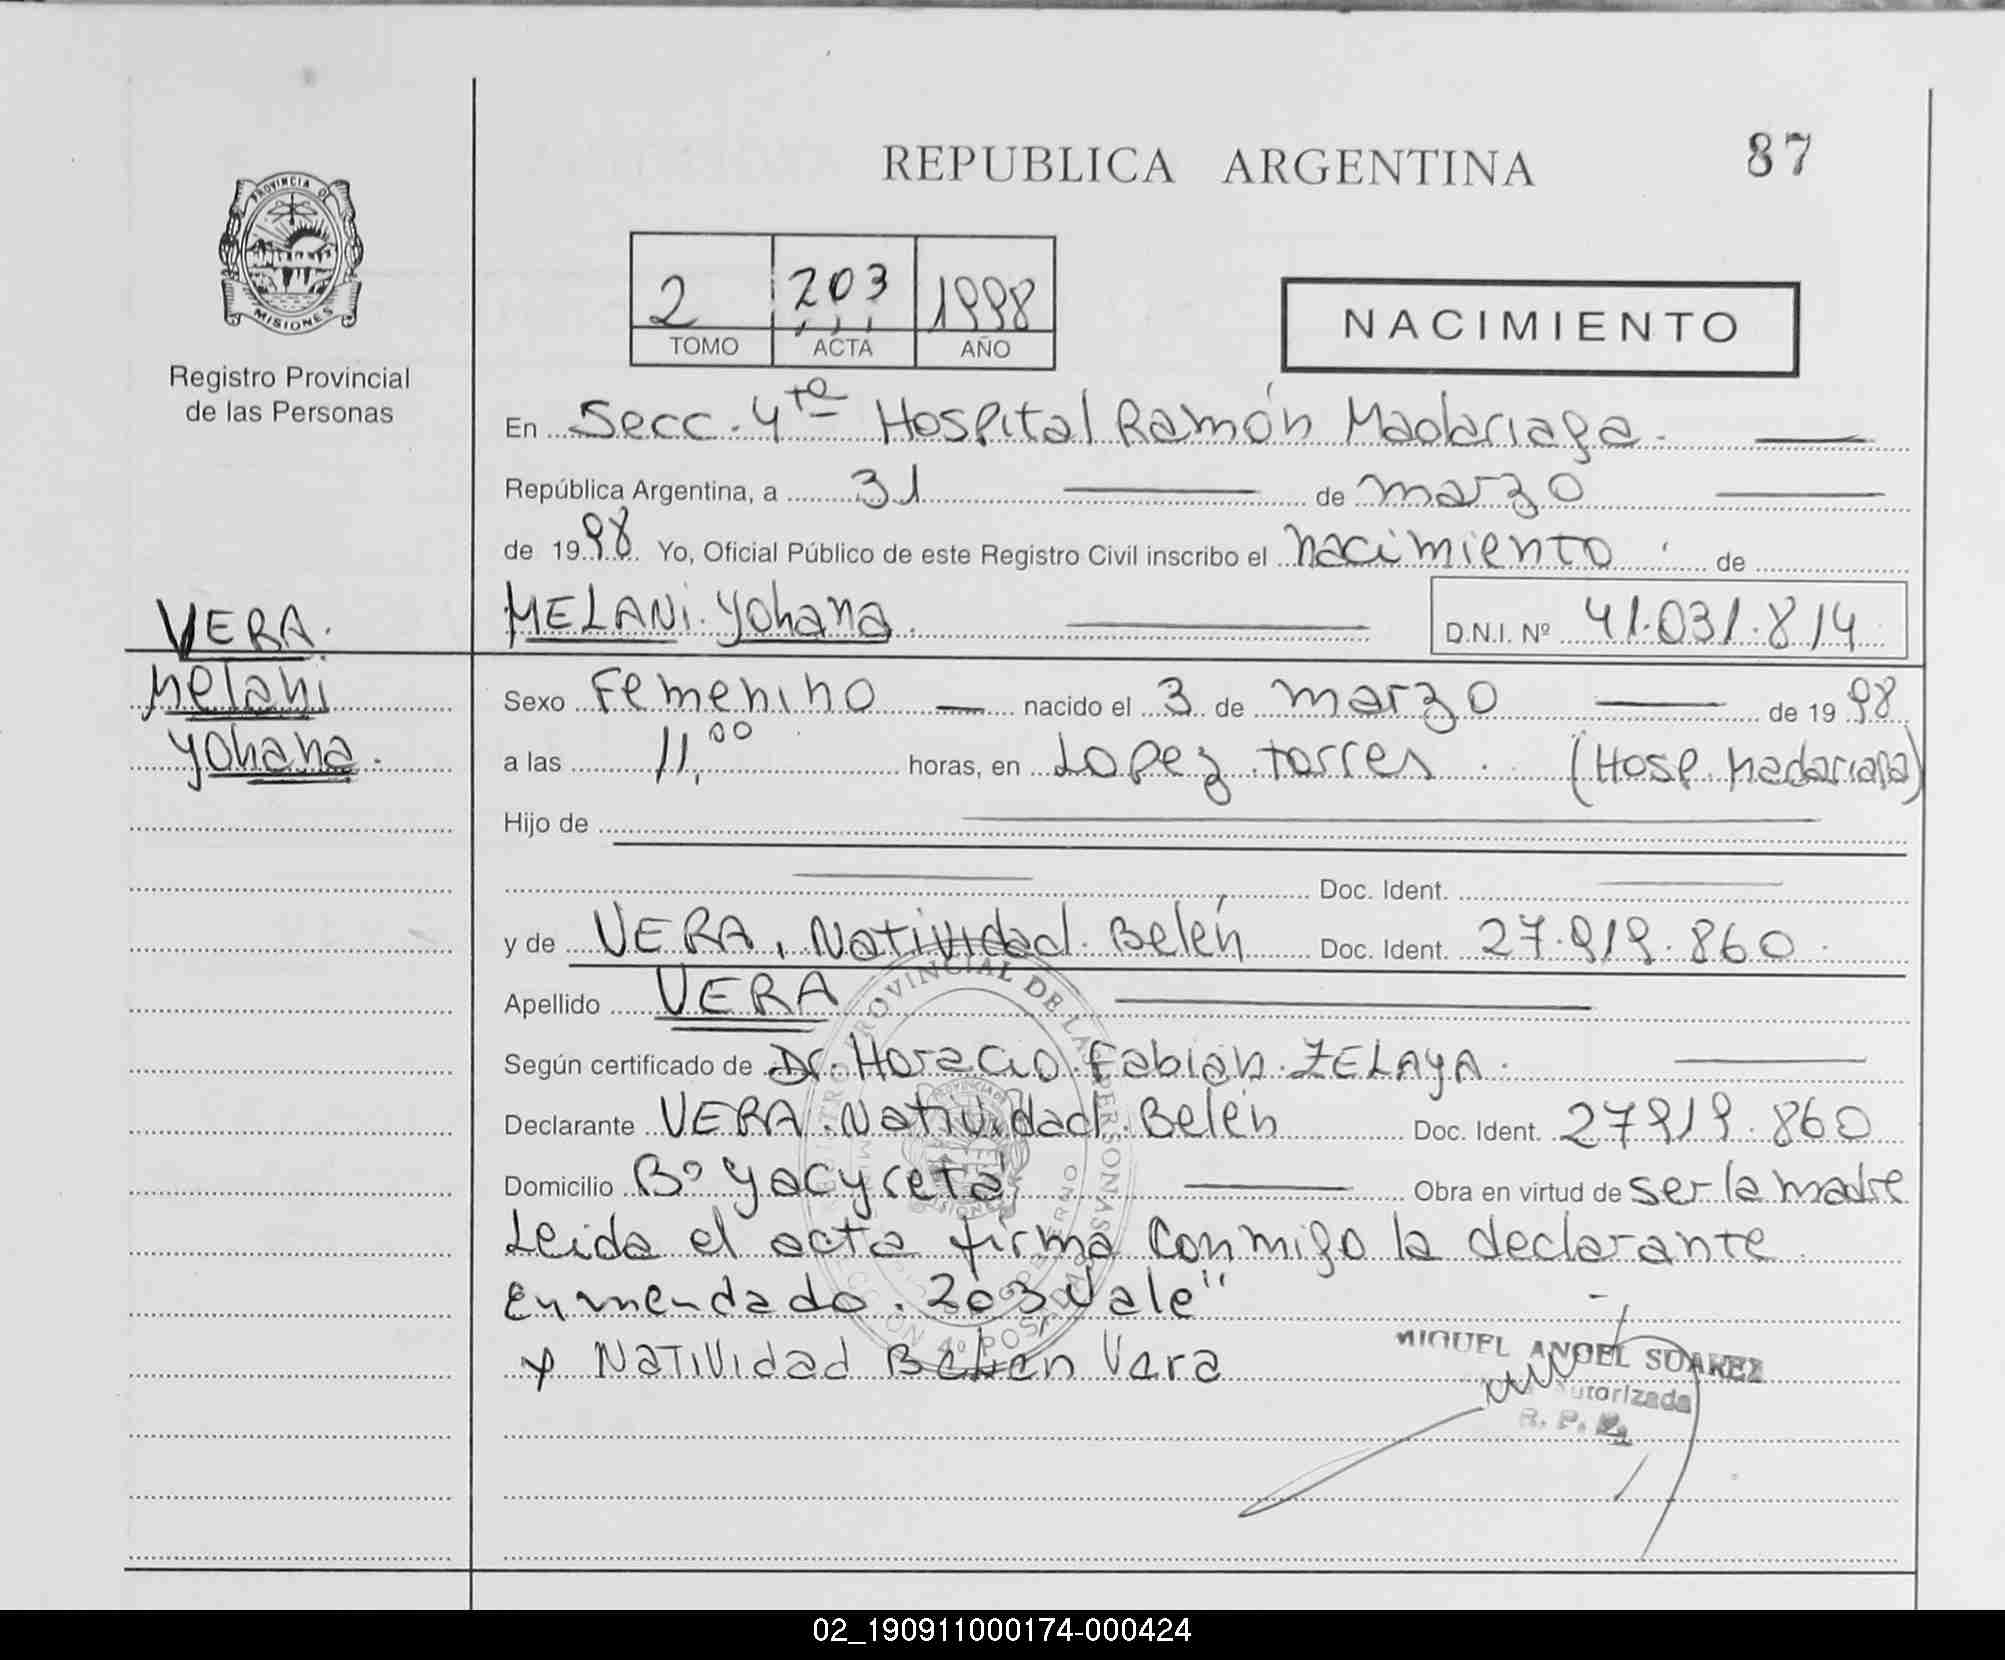 REPUBLICA ARGENTINA
87
PROVINCIA DE
MISIONES
Registro Provincial
de las Personas
2 203 1998
TOMO ACTA AÑO
NACIMIENTO
En Secc. 4ta Hospital Ramón Madariaga.
República Argentina, a 31 de marzo
de 1998. Yo, Oficial Público de este Registro Civil inscribo el nacimiento de
VERA.
Melani
Yohana.
MELANi Yohana. D.N.I. Nº 41.031.814
Sexo Femenino nacido el 3 de marzo de 1998
a las 11,00 horas, en Lopez torres (Hosp. Madariaga)
Hijo de
Doc. Ident.
y de VERA, Natividad Belén Doc. Ident. 27.919.860
Apellido VERA
Según certificado de Dr. Horacio Fabián ZELAYA.
Declarante VERA Natividad Belén Doc. Ident. 27919.860
Domicilio Bº Yacyretá Obra en virtud de ser la madre
Leida el acta firma conmigo la declarante
Enmendado. 203 Vale"
Natividad Belen Vera
MIGUEL ANGEL SUAREZ
Autorizada
R. P. P.
REGISTRO PROVINCIAL DE LAS PERSONAS
SECCION 4º POSADAS
02_190911000174-000424